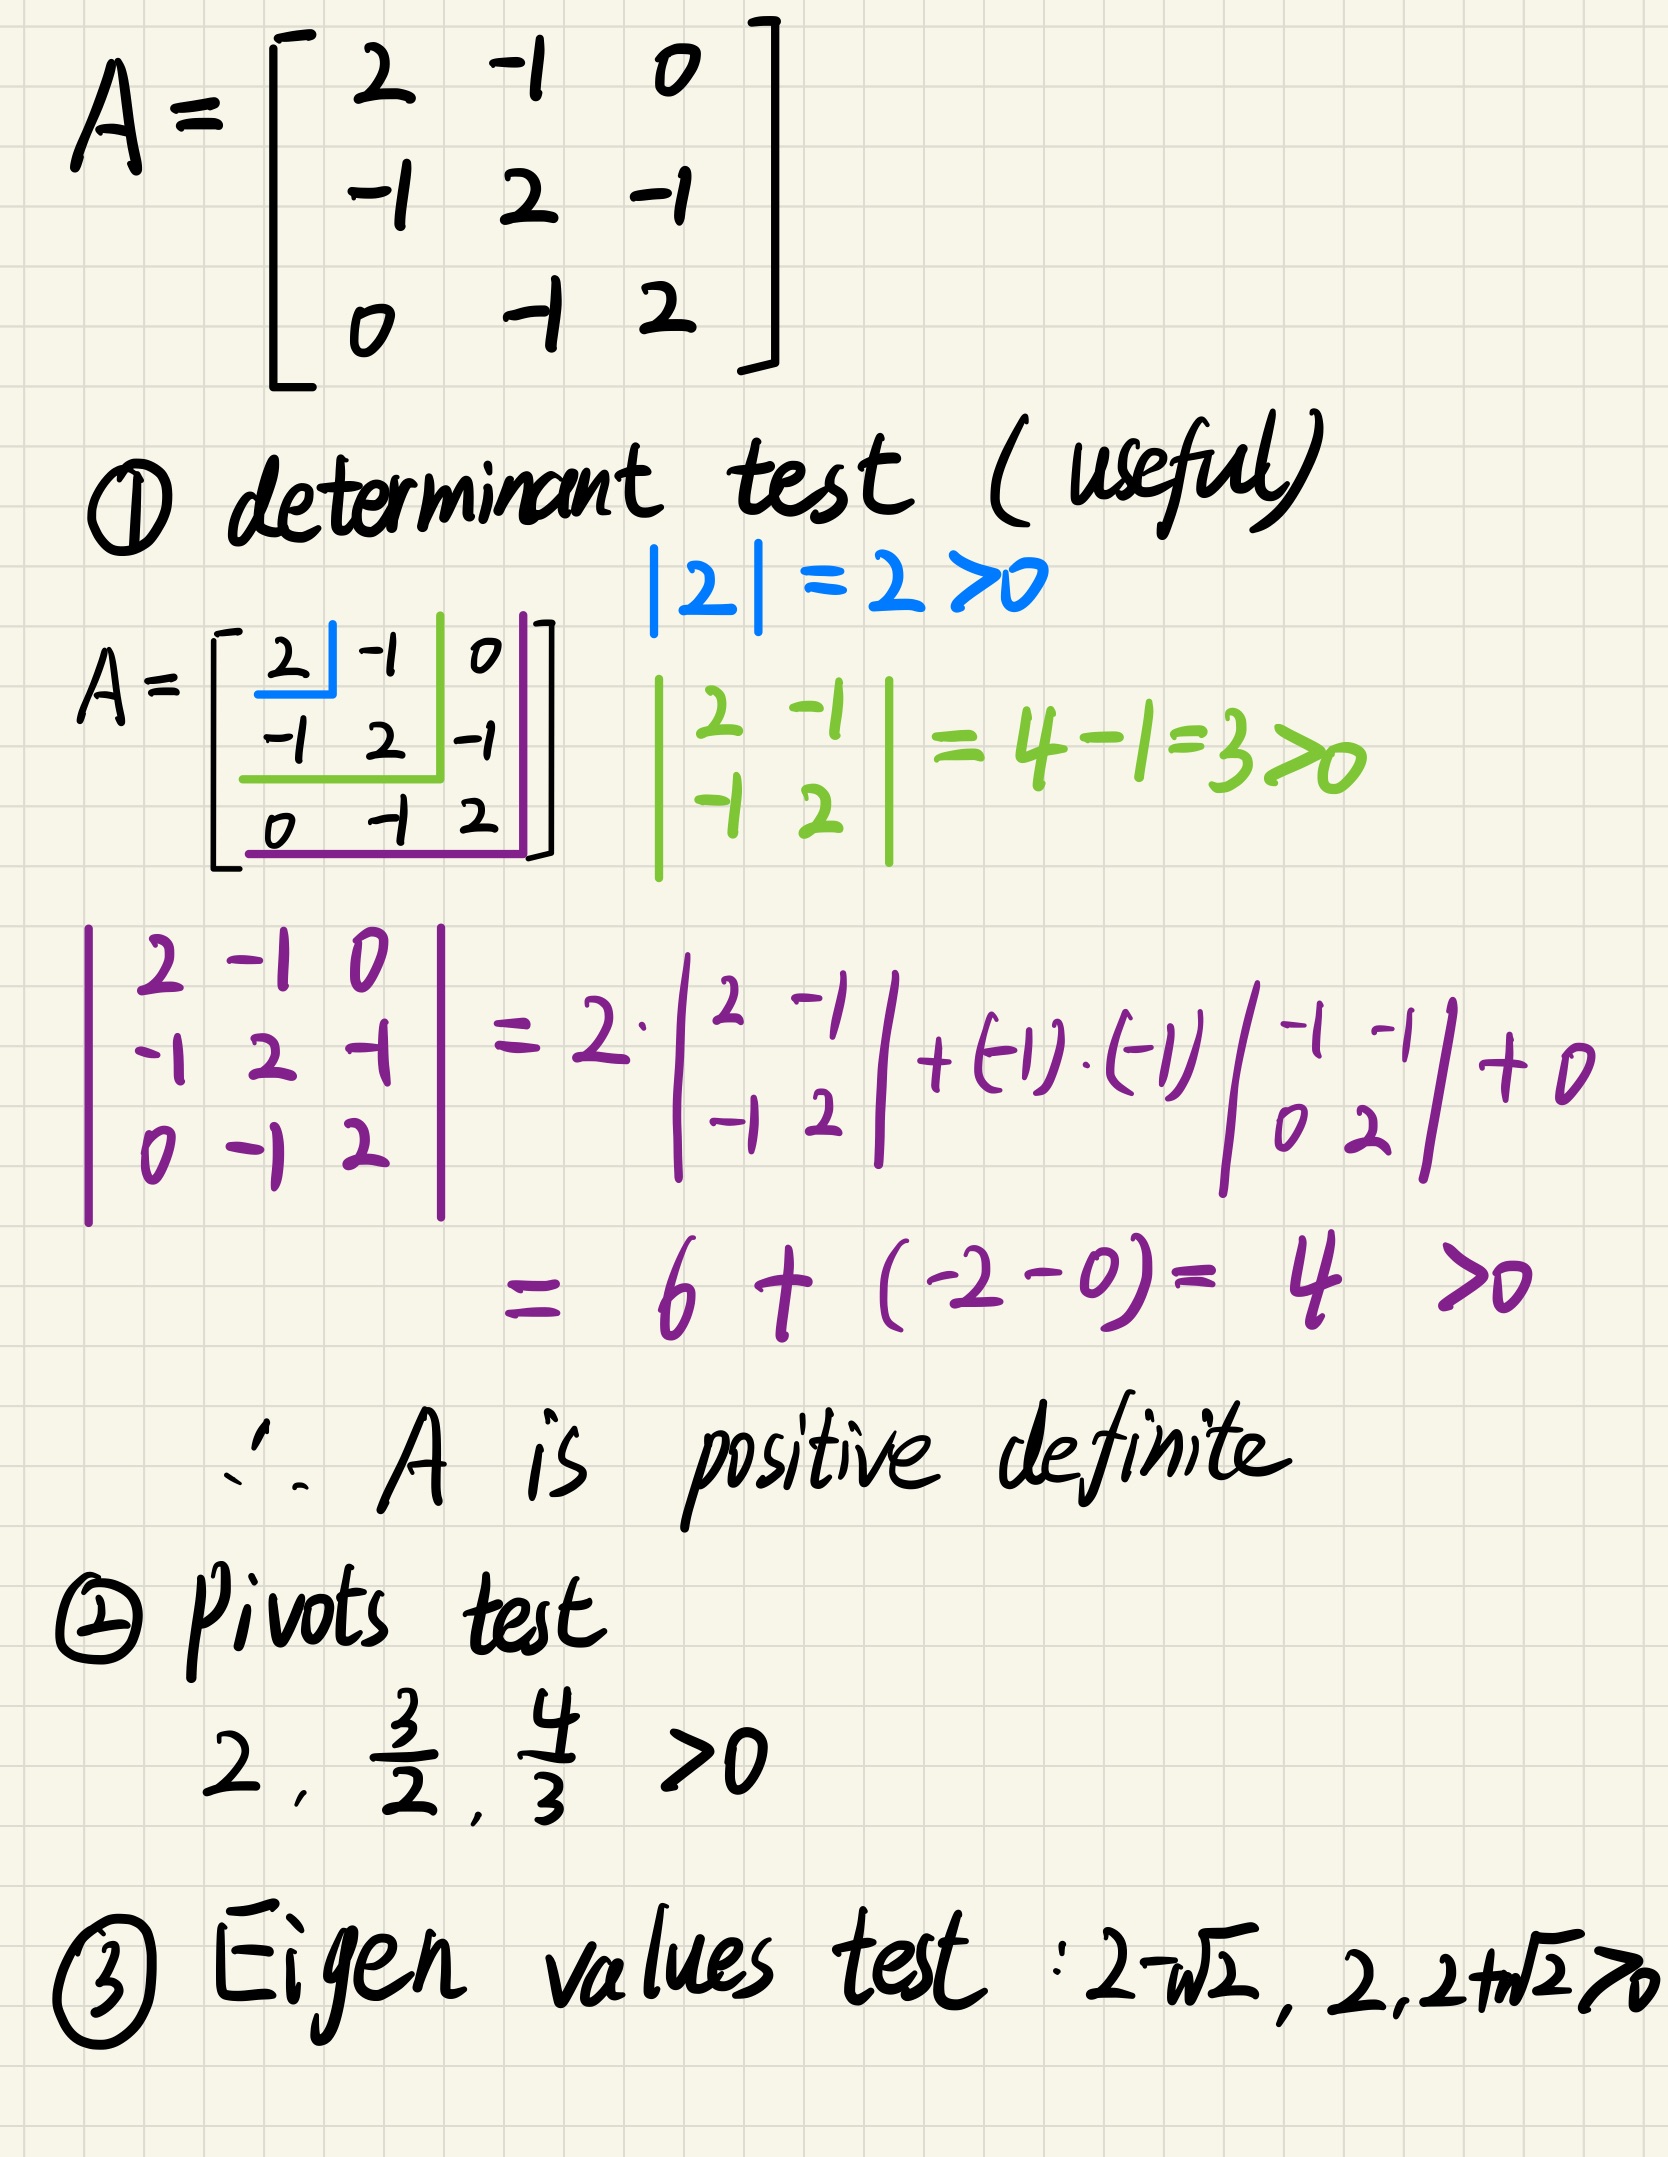 A = [ 2 -1 0
-1 2 -1
0 -1 2 ]
① determinant test (useful)
|2| = 2 >0
A = [ 2 -1 0
-1 2 -1
0 -1 2 ]
| 2 -1
-1 2 | = 4-1=3>0
| 2 -1 0
-1 2 -1
0 -1 2 | = 2· | 2 -1
-1 2 | + (-1)·(-1) | -1 -1
0 2 | + 0
= 6 + (-2-0) = 4 >0
∴ A is positive definite
② Pivots test
2, 3/2, 4/3 >0
③ Eigen values test : 2-√2, 2, 2+√2>0